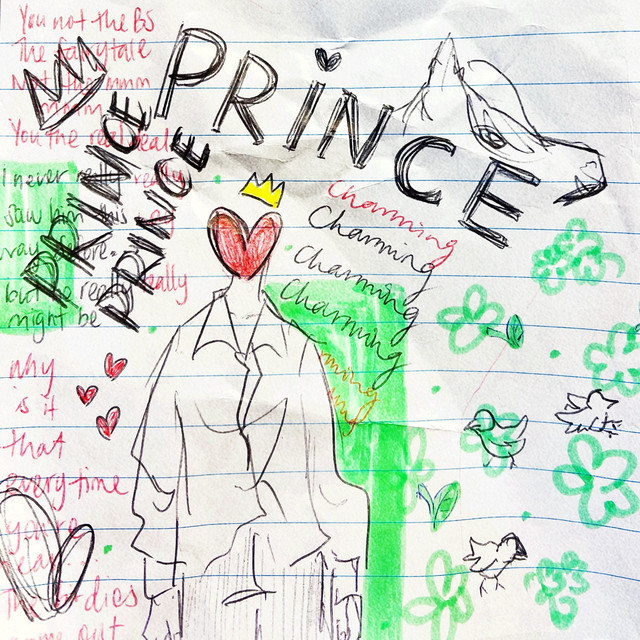 PRINCE
PRINCE
PRINCE
Charming
Charming
Charming
Charming
ming
You not the BS
The fairytale
Not the mmm
You the real deal
I never really really
Saw him this
way before.
but he
might be
why
is it
that
everytime
you're
The birdies
come out